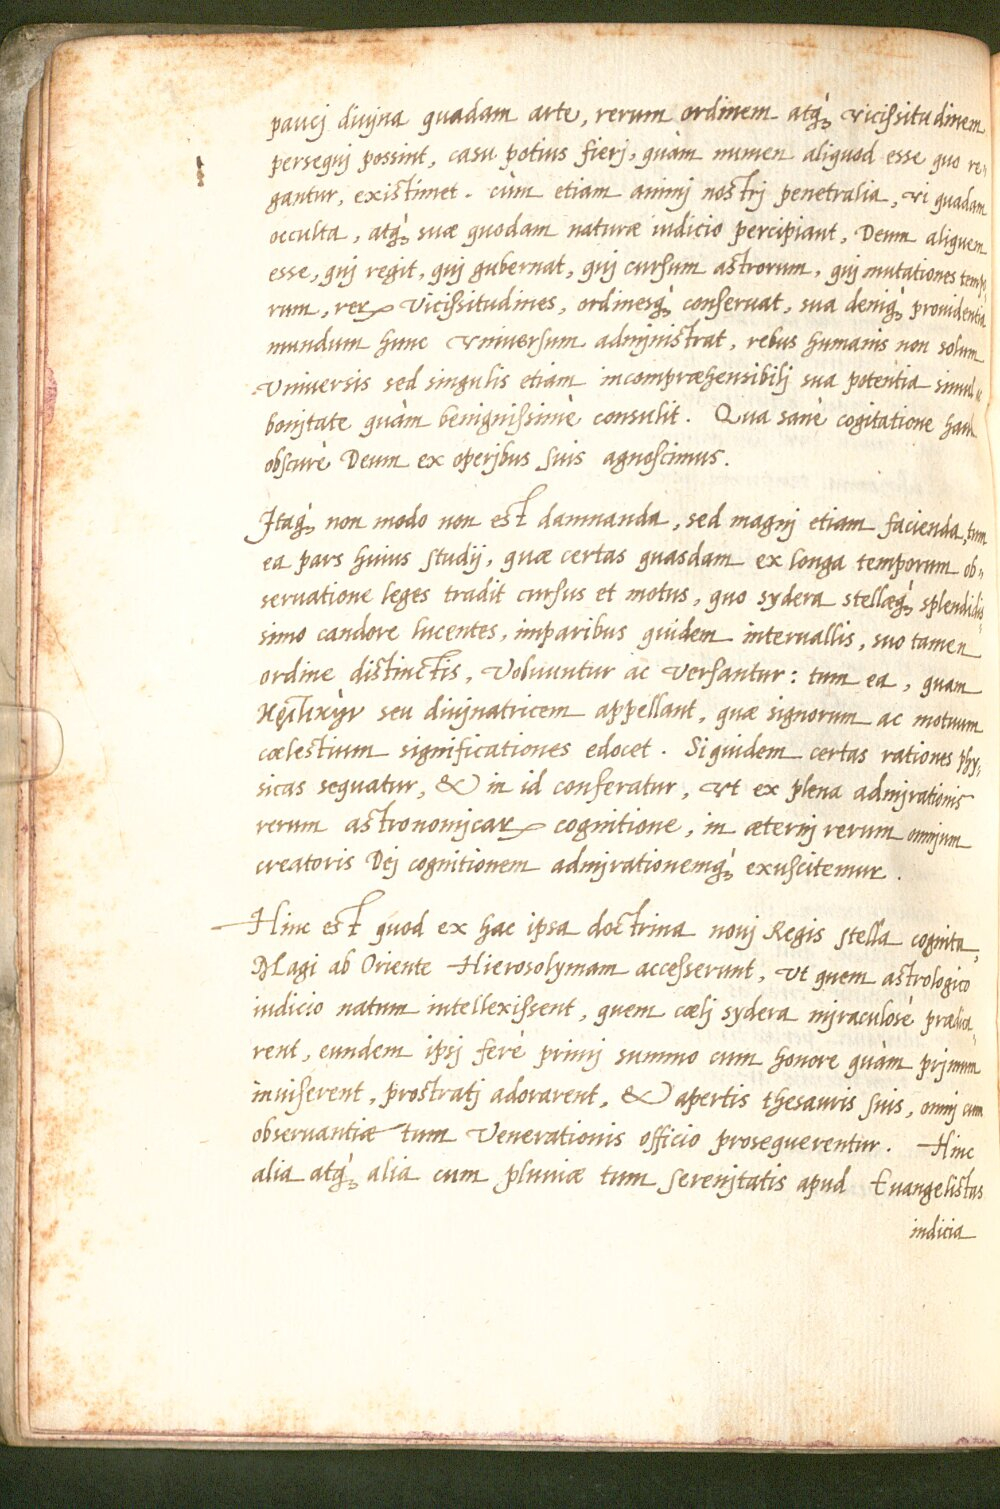 paucj diujna quadam arte, rerum ordinem atq́ꝫ vicißitudinem
persequj possint, casu potius fierj, quàm numen aliquod esse quo re-
gantur, existimet. cùm etiam animj nostrj penetralia, vi quadam
occulta, atq́ꝫ suæ quodam naturæ iudicio percipiant, Deum aliquem
esse, quj regit, quj gubernat, quj cursum astrorum, quj mutationes tempo
rum, reꝝ vicißitudines, ordinesq́ꝫ conseruat, sua deniq́ꝫ prouidentia
mundum hunc vniuersum admjnistrat, rebus humanis non solum
vniuersis sed singulis etiam incompræhensibilj sua potentia simul ac
bonjtate quàm benignißimè consulit. Qua sanè cogitatione haud
obscurè Deum ex operjbus suis agnoscimus.
Jtaq́ꝫ non modo non est damnanda, sed magnj etiam facienda, tum
ea pars huius studij, quæ certas quasdam ex longa temporum ob-
seruatione leges tradit cursus et motus, quo sydera stellæq́ꝫ splendidis-
simo candore lucentes, imparibus quidem interuallis, suo tamen
ordine distinctis, voluuntur ac versantur: tum ea, quam
seu diujnatricem appellant, quæ signorum ac motuum
cælestium significationes edocet. Siquidem certas rationes phy-
sicas sequatur, & in id conferatur, vt ex plena admjrationis
rerum astronomjcaꝝ cognitione, in æternj rerum omnjum
creatoris Dej cognitionem admjrationemq́ꝫ exuscitemur.
Hinc est quod ex hac ipsa doctrina nouj Regis stella cognita,
Magi ab Oriente Hierosolymam accesserunt, vt quem astrologico
iudicio natum intellexißent, quem cælj sydera mjraculosè prædica-
rent, eundem ipsj ferè primj summo cum honore quàm prjmum
inuiserent, prostratj adorarent, & apertis thesauris suis, omnj cum
obseruantiæ tum venerationis officio prosequerentur. Hinc
alia atq́ꝫ alia cum pluuiæ tum serenjtatis apud Euangelistas
indicia